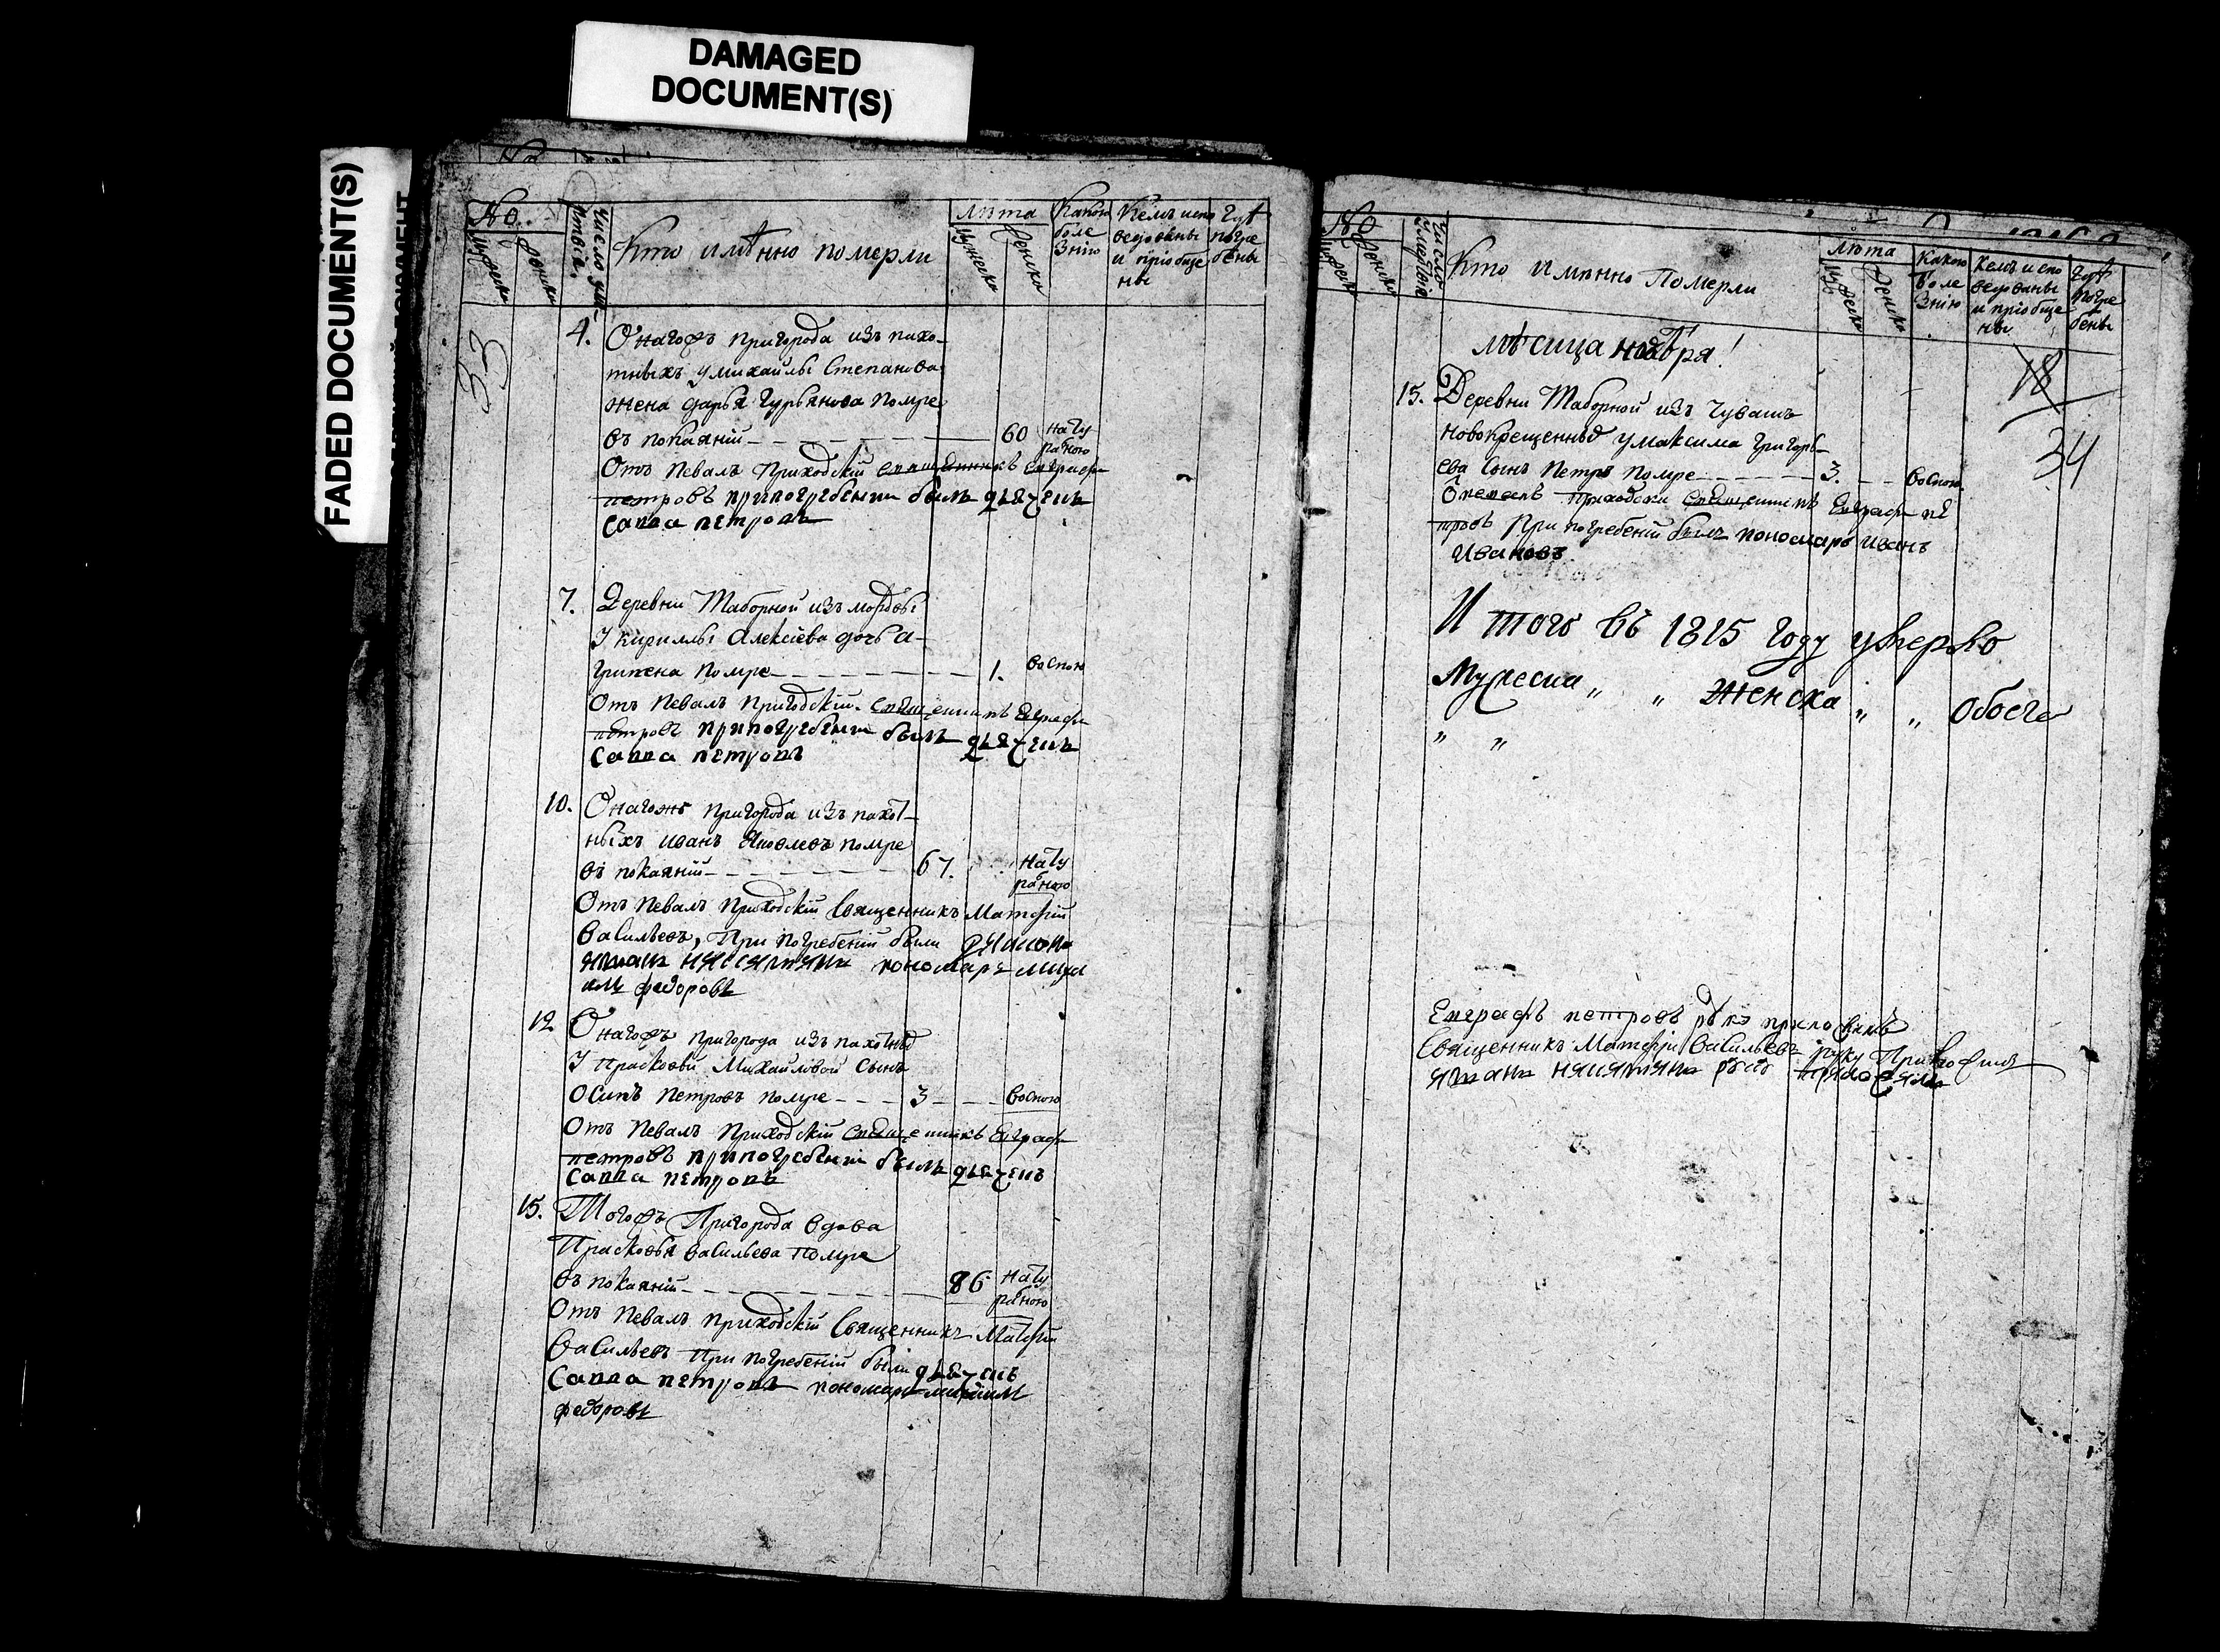 DAMAGED
DOCUMENT(S)
FADED DOCUMENT(S)
No.
Число
Кто имѣнно померли
лѣта
Какою
боле
знію
Кемъ испо
ведованы
и пріобще
ны
Гдѣ
погре
бены
33
4. Онагожъ пригорода изъ пахо-
тныхъ у михайлы Степанова
жена дарья Гурьянова помре
въ покаяніи 60 нату
ралною
Отъ певалъ Приходскій священникъ Евграфъ
петровъ припогребении былъ дьячекъ
Савва петровъ
7. Деревни Таборной изъ мордвы
У кириллы Алексіева дочь а-
грипена помре 1. воспою
Отъ певалъ Приходскій священникъ Евграфъ
петровъ припогребении былъ дьячекъ
Савва петровъ
10. Онагожъ пригорода изъ пахот-
ныхъ иванъ Яковлевъ помре
въ покаяніи 67. нату
ралною
Отъ певалъ Приходскій Священникъ Матфій
васильевъ, При погребеніи были
пономарь миха
илъ федоровъ
12 Онагожъ пригорода изъ пахотныхъ
У Прасковьи Михайловой сынъ
Осипъ Петровъ помре 3 воспою
Отъ певалъ Приходскій священникъ Евграфъ
петровъ припогребении былъ дьячекъ
Савва петровъ
15. Тогожъ Пригорода вдова
Прасковья васильева помре
въ покаяніи 86 нату
ралною
Отъ певалъ приходскій Священникъ Матфій
васильевъ при погребеніи были дьячекъ
Савва петровъ пономарь михаилъ
федоровъ
No
Число
Кто имянно Померли
лѣта
Какою
боле
знію
Кемъ испо
ведованы
и пріобще
ны
Гдѣ
погре
бены
мѣсица ноября!
18
34
15. Деревни Таборной изъ Чувашъ
новокрещенныхъ у максима григорь-
ева сынъ Петръ помре 3. воспою.
Опевалъ приходски священникъ Евграфъ пе
тровъ При погребеніи былъ пономарь иванъ
Ивановъ.
Итого въ 1815 году умерло
Мужеска „ „ Женска „ „ Обоего
„ „
Евграфъ петровъ руку приложилъ
Священникъ Матфій васильевъ руку Приложилъ